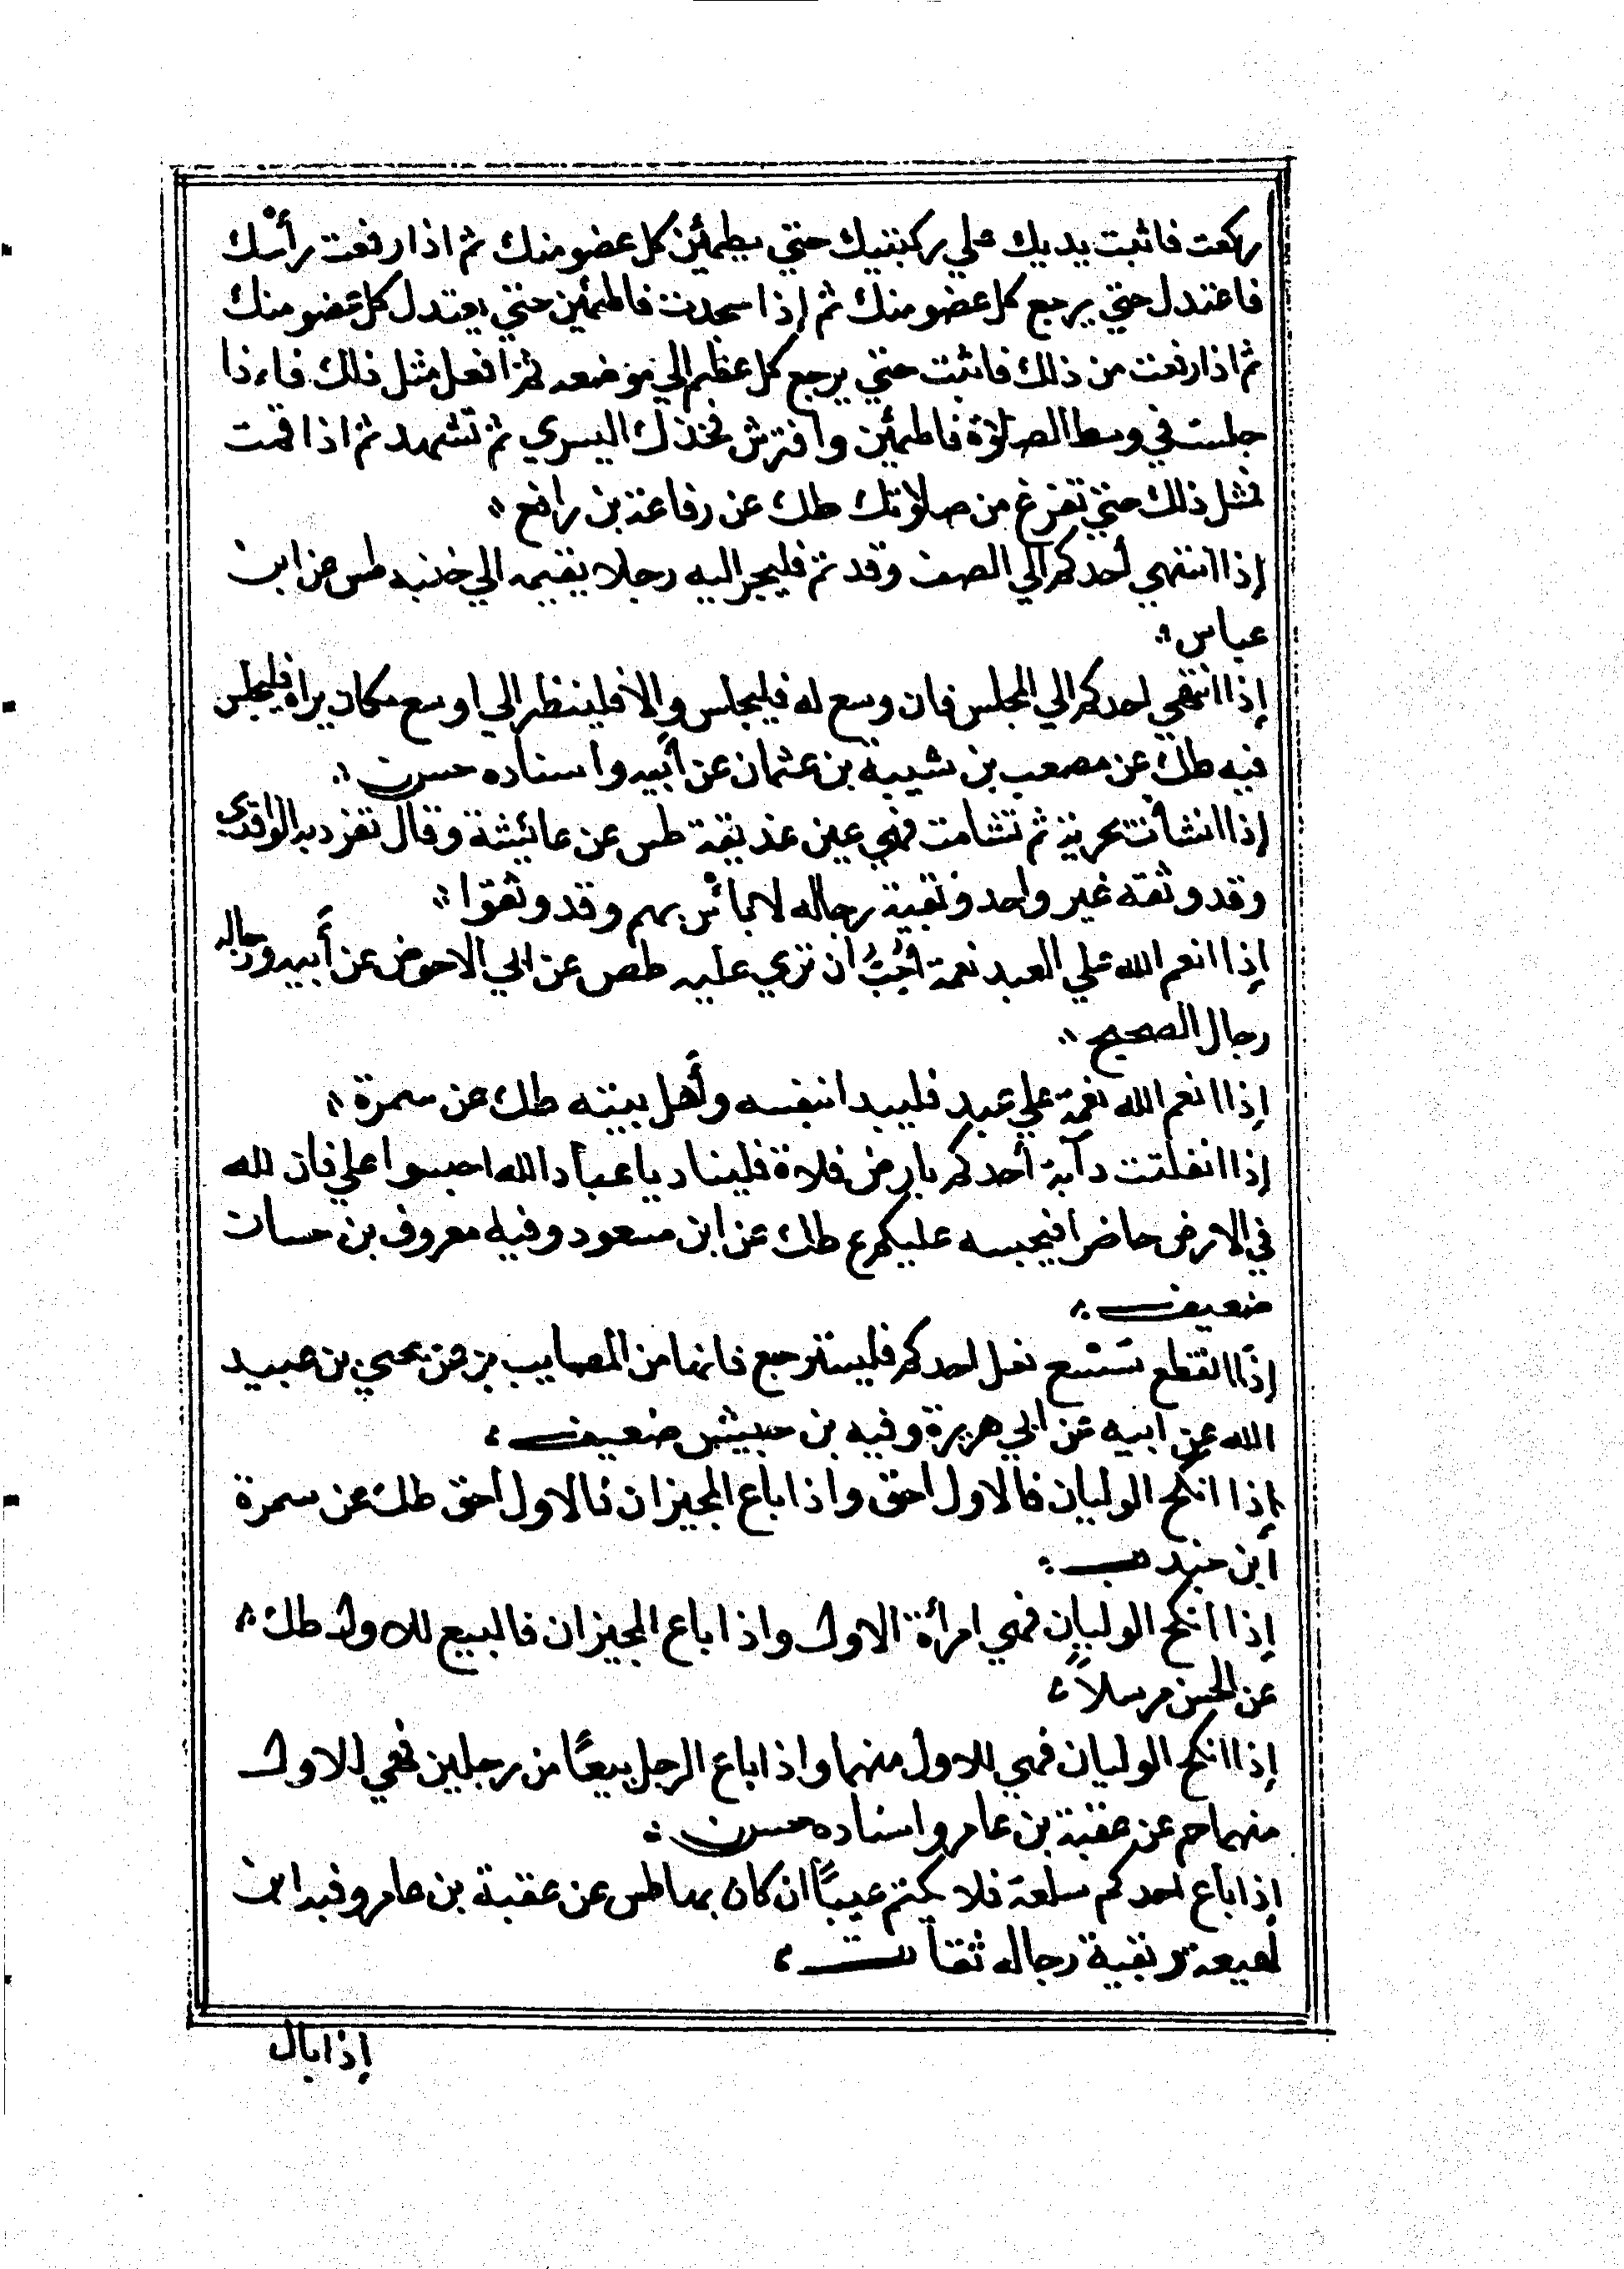 ركعت فاثبت يديك على ركبتيك حتي يطمئن كل عضو منك ثم اذا رفعت رأسك
فاعتدل حتي يرجع كل عضو منك ثم إذا سجدت فاطمئن حتي يعتدل كل عضو منك
ثم اذا رفعت من ذلك فاثبت حتي يرجع كل عظم الي موضعه ثم افعل مثل ذلك فاءذا
جلست في وسط الصلوة فاطمئن وافترش فخذك اليسري ثم تشهد ثم اذا قمت
فمثل ذلك حتي تفرغ من صلاوتك طك عن رفاعة بن رافع
إذا انتهي أحدكم الي الصف وقد تم فليجر اليه رجلا يقيمه الي جنبه طس عن ابن
عباس
إذا انتهي احدكم الي المجلس فان وسع له فليجلس والا فلينظر الي اوسع مكان يراه فليجلس
فيه طك عن مصعب بن شيبة بن عثمان عن أبيه واسناده حسن
إذا انشأت بحرية ثم تشامت فهي عين غديقة طس عن عائيشة وقال تفرد به الواقدي
وقد وثقه غير واحد وبقية رجاله لا بأس بهم وقد وثقوا
إذا انعم الله علي العبد نعمة احب ان تري عليه طص عن ابي الاحوص عن أبيه ورجاله
رجال الصحيح
إذا انعم الله نعمة علي عبد فليبدا بنفسه وأهل بيته طك عن سمرة
إذا انفلتت دآبة أحدكم بارض فلاة فليناد يا عبأد الله احبسوا علي فان لله
في الارض حاضرا فيحبسه عليكم ع طك عن ابن مسعود وفيه معروف بن حسان
ضعيف
إذا انقطع شسع نعل احدكم فليسترجع فانها من المصايب بز عن يحيي بن عبيد
الله عن ابيه عن ابي هريرة وفيه بن حبيش ضعيف
إذا انكح الوليان فالاول احق واذا باع المجيزان فالاول احق طك عن سمرة
أبن جندب
إذا أنكح الوليان فهي امرأة الاول واذا باع المجيزان فالبيع للاول طك
عن الحسن مرسلاً
إذا انكح الوليان فهي للاول منهما واذا باع الرجل بيعًا من رجلين فهي للاول
منهما حم عن عقبة بن عامر واسناده حسن
إذا باع احدكم سلعة فلا يكتم عيبًا ان كان بها طس عن عقبة بن عامر وفيه ابن
لهيعة وبقية رجاله ثقات
إذا بال